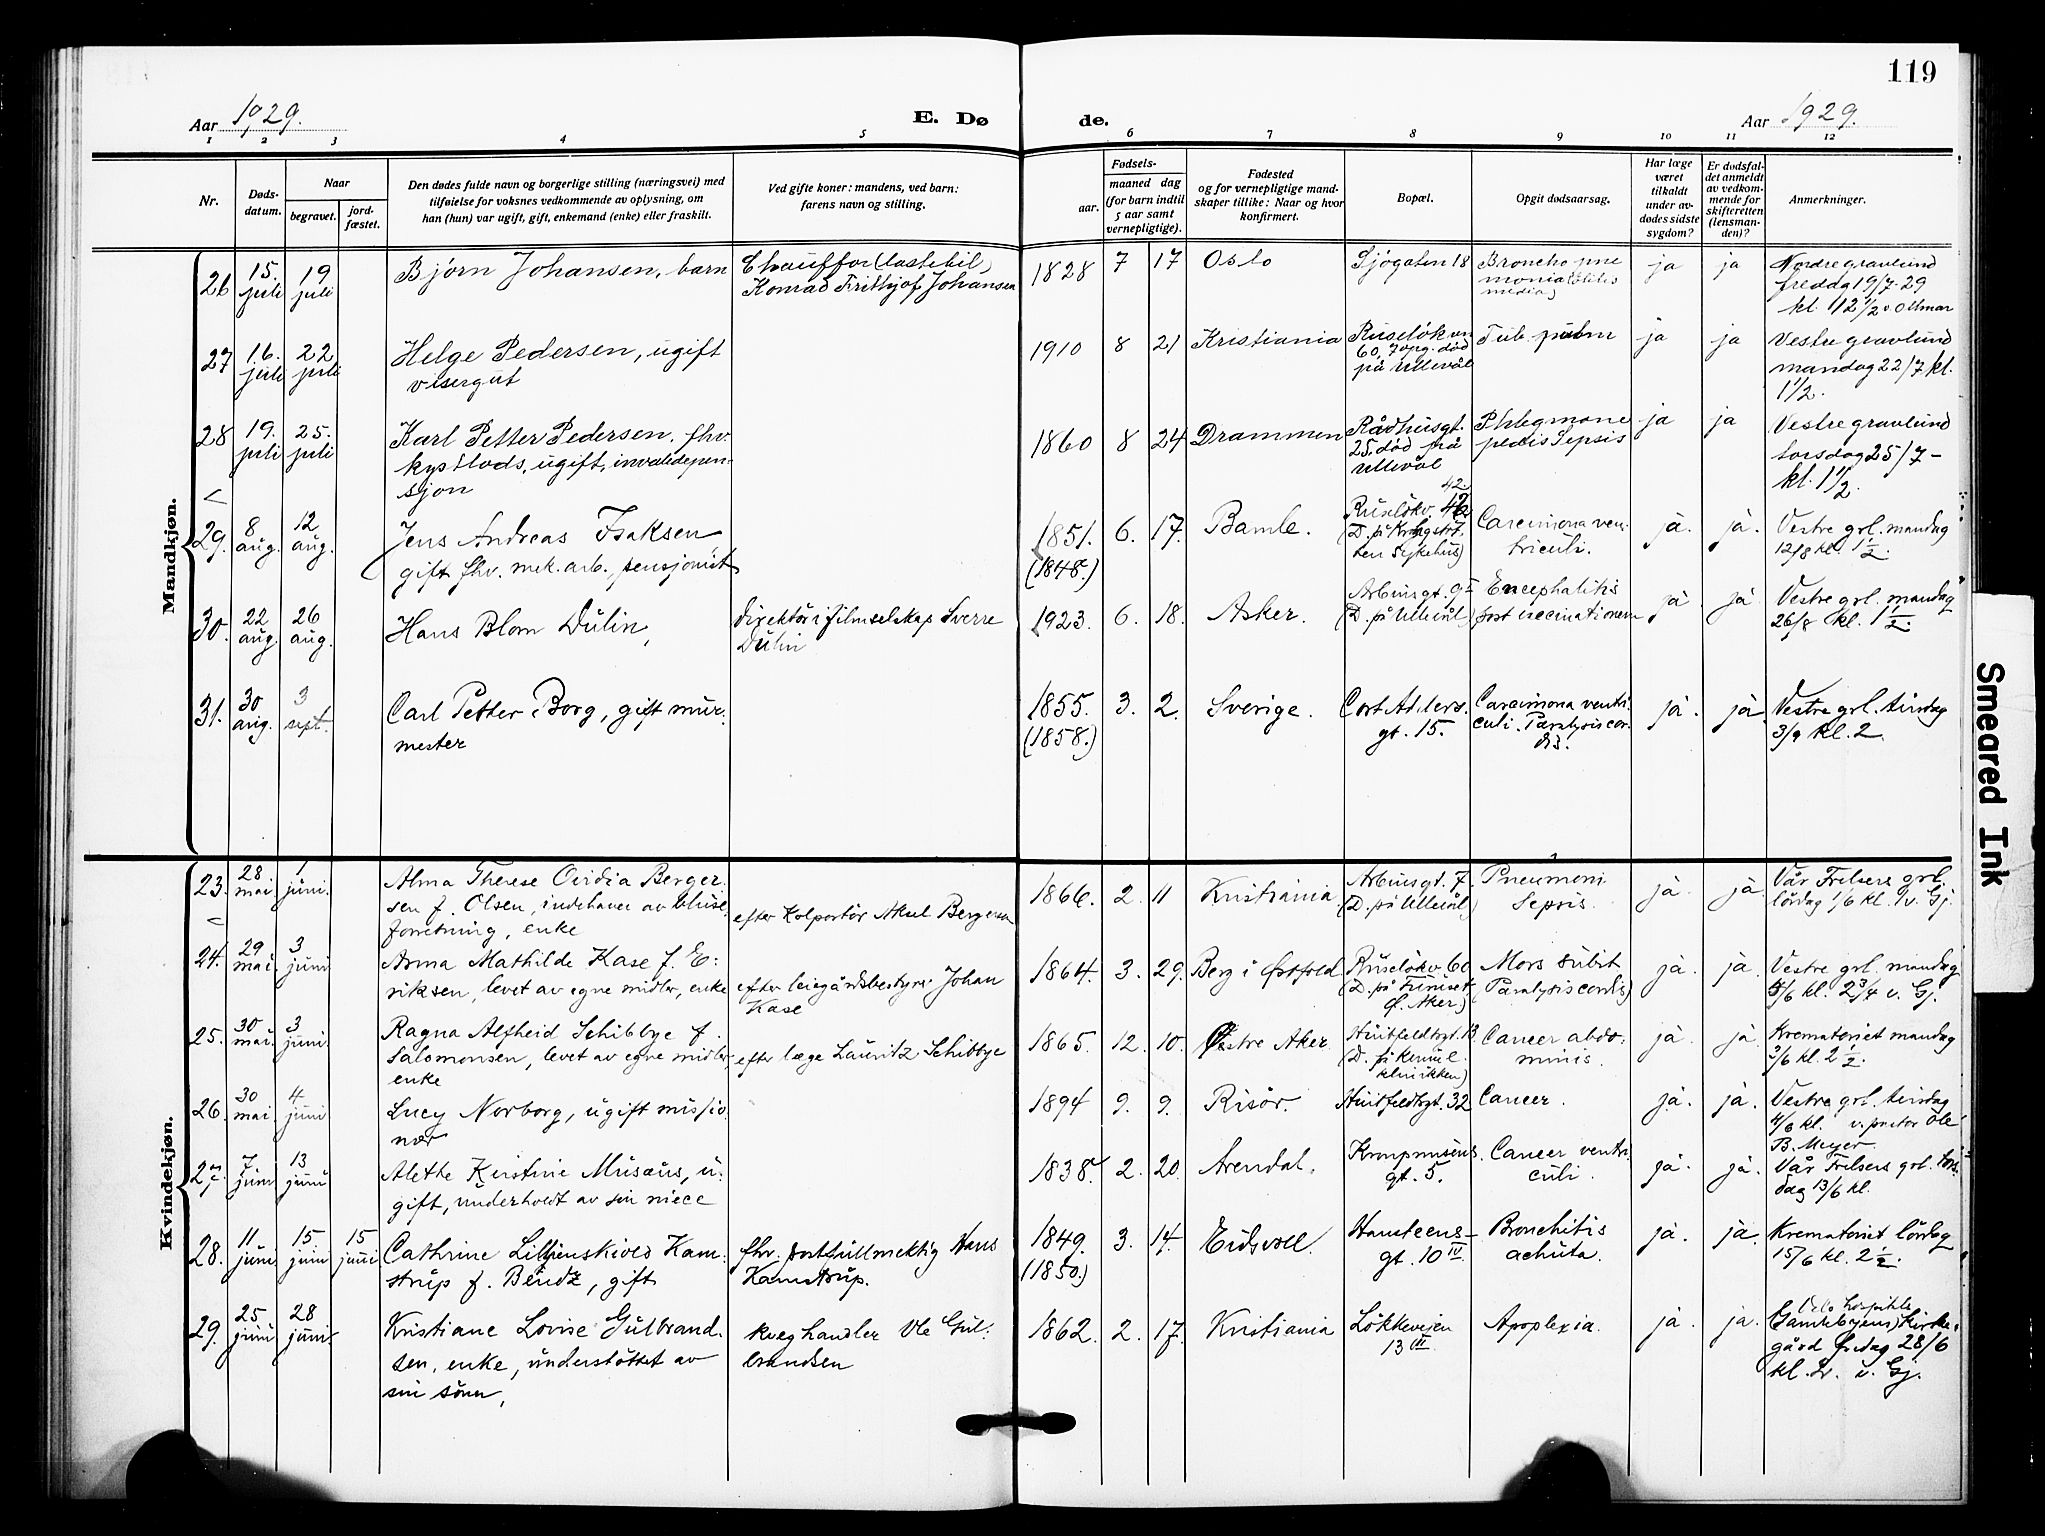 119
Aar 1929. E. Dø de. Aar 1929.
1 2 3 4 5 6 7 8 9 10 11 12
Nr.
Døds-
datum.
Naar
begravet.
jord-
fæstet.
Den dødes fulde navn og borgerlige stilling (næringsvei) med
tilføielse for voksnes vedkommende av oplysning, om
han (hun) var ugift, gift, enkemand (enke) eller fraskilt.
Ved gifte koner: mandens, ved barn:
farens navn og stilling.
Fødsels-
aar.
maaned dag
(for barn indtil
5 aar samt
vernepligtige).
Fødested
og for vernepligtige mand-
skaper tillike: Naar og hvor
konfirmert.
Bopæl.
Opgit dødsaarsag.
Har læge
været
tilkaldt
under av-
dødes sidste
sygdom?
Er dødsfal-
det anmeldt
av vedkom-
mende for
skifteretten
(lensman-
den)?
Anmerkninger.
Mandkjøn.
26 15. juli 19 juli
Bjørn Johansen, barn
Chauffør (lastebil)
Konrad Frithjof Johansen
1828 7 17 Oslo
Sjøgaten 18
Broncho pne
monia (otitis
media)
ja ja
Nordre gravlund
fredag 19/7-29
kl. 12 1/2 v. Ottmar
27 16. juli 22 juli
Helge Pedersen, ugift
visergut
1910 8 21 Kristiania
Ruseløkvn
60, 7 opg. død
på Ullevål
Tub. pulm
ja ja
Vestre gravlund
mandag 22/7 kl.
1 1/2.
28 19. juli 25. juli
Karl Petter Pedersen, fhv.
kystlods, ugift, invalidepen-
sjon
1860 8 24 Drammen
Rådhusgt.
25. død på
Ullevål
Phlegmone
pedis Sepsis
ja ja
Vestre gravlund
torsdag 25/7 -
kl. 1 1/2.
29. 8 aug. 12 aug.
Jens Andreas Isaksen
gift fhv. mek. arb., pensjonist
1851. 6. 17. Bamle.
(1848.)
42.
Ruseløkv. 42
Carcinoma ven-
triculi.
ja. ja.
Vestre grl. mandag
12/8 kl. 1 1/2.
30. 22 aug. 26 aug.
Hans Blom Dulin,
direktør i filmselskap Sverre
Dulin
1923. 6. 18. Asker.
Arbinsgt. 9 I
(D. på Ullevål)
Encephalitis
post vaccinationem
ja. ja.
Vestre grl. mandag
26/8 kl. 1 1/2.
31. 30 aug. 3 sept.
Carl Petter Borg, gift mur-
mester
1855. 3. 2. Sverige.
(1858.)
Cort Adlers
gt. 15.
Carcinoma ventri-
culi. Paralysis cor-
dis.
ja. ja.
Vestre grl. tirsdag
3/9 kl. 2.
Kvindekjøn.
23. 28 mai 1 juni.
Alma Therese Ovidia Berger-
sen f. Olsen, indehaver av bluse
forretning, enke
efter Kolportør Aksel Bergersen
1866. 2. 11 Kristiania
Arbinsgt. 7.
(D. på Ullevål)
Pneumoni
Sepsis.
ja. ja.
Vår Frelsers grl.
lørdag 1/6 kl. 1 v. Gj.
24. 29 mai. 3 juni
Anna Mathilde Kase f. E-
riksen, levet av egne midler, enke
efter leiegårdsbestyrer Johan
Kase
1864. 3. 29. Berg i Østfold
Ruseløkv. 60
Ø. Aker)
Mors subit
(Paralysis cordis)
ja. ja.
Vestre grl. mandag
3/6 kl. 2 3/4 v. Gj.
25. 30 mai. 3 juni.
Ragna Alfheid Schibbye f.
Salomonsen, levet av egne midler,
enke
efter læge Lauritz Schibbye
1865. 12. 10. Østre Aker
Huitfeldtsgt. 13
klinikken)
Cancer abdo-
minis.
ja. ja.
Krematoriet mandag
3/6 kl. 2 1/2.
26. 30 mai. 4 juni
Lucy Norborg, ugift missio-
nær
1894 9. 9. Risør.
Huitfeldtsgt. 32
Cancer.
ja. ja.
Vestre grl. tirsdag
4/6 kl. v. pastor Ole
B. Meyer.
27. 7 juni 13 juni
Alethe Kirstine Musæus, u-
gift, underholdt av sin niece
1838. 2. 20. Arendal.
Kronprinsens
gt. 5.
Cancer ventri-
culi.
ja. ja.
Vår Frelsers grl. tors-
dag 13/6 kl.
28. 11 juni 15 juni 15 juni
Cathrine Lilljenskiold Kam-
strup f. Bendz, gift
fhv. postfullmektig Hans
Kamstrup.
1849. 3. 14. Eidsvoll.
(1850.)
Hansteens-
gt. 10 IV.
Bronchitis
achuta.
ja. ja.
Krematoriet lørdag
15/6 kl. 2 1/2.
29. 25 juni 28 juni.
Kristiane Lovise Gulbrand-
sen, enke, understøttet av
sin sønn,
kveghandler Ole Gul-
brandsen
1862. 2. 17. Kristiania
Løkkeveien
13 III.
Apoplexia.
ja. ja.
Oslo hospitals
(Gamlebyens) Kirke-
gård fredag 28/6
kl. 2. v. Gj.
Smeared Ink